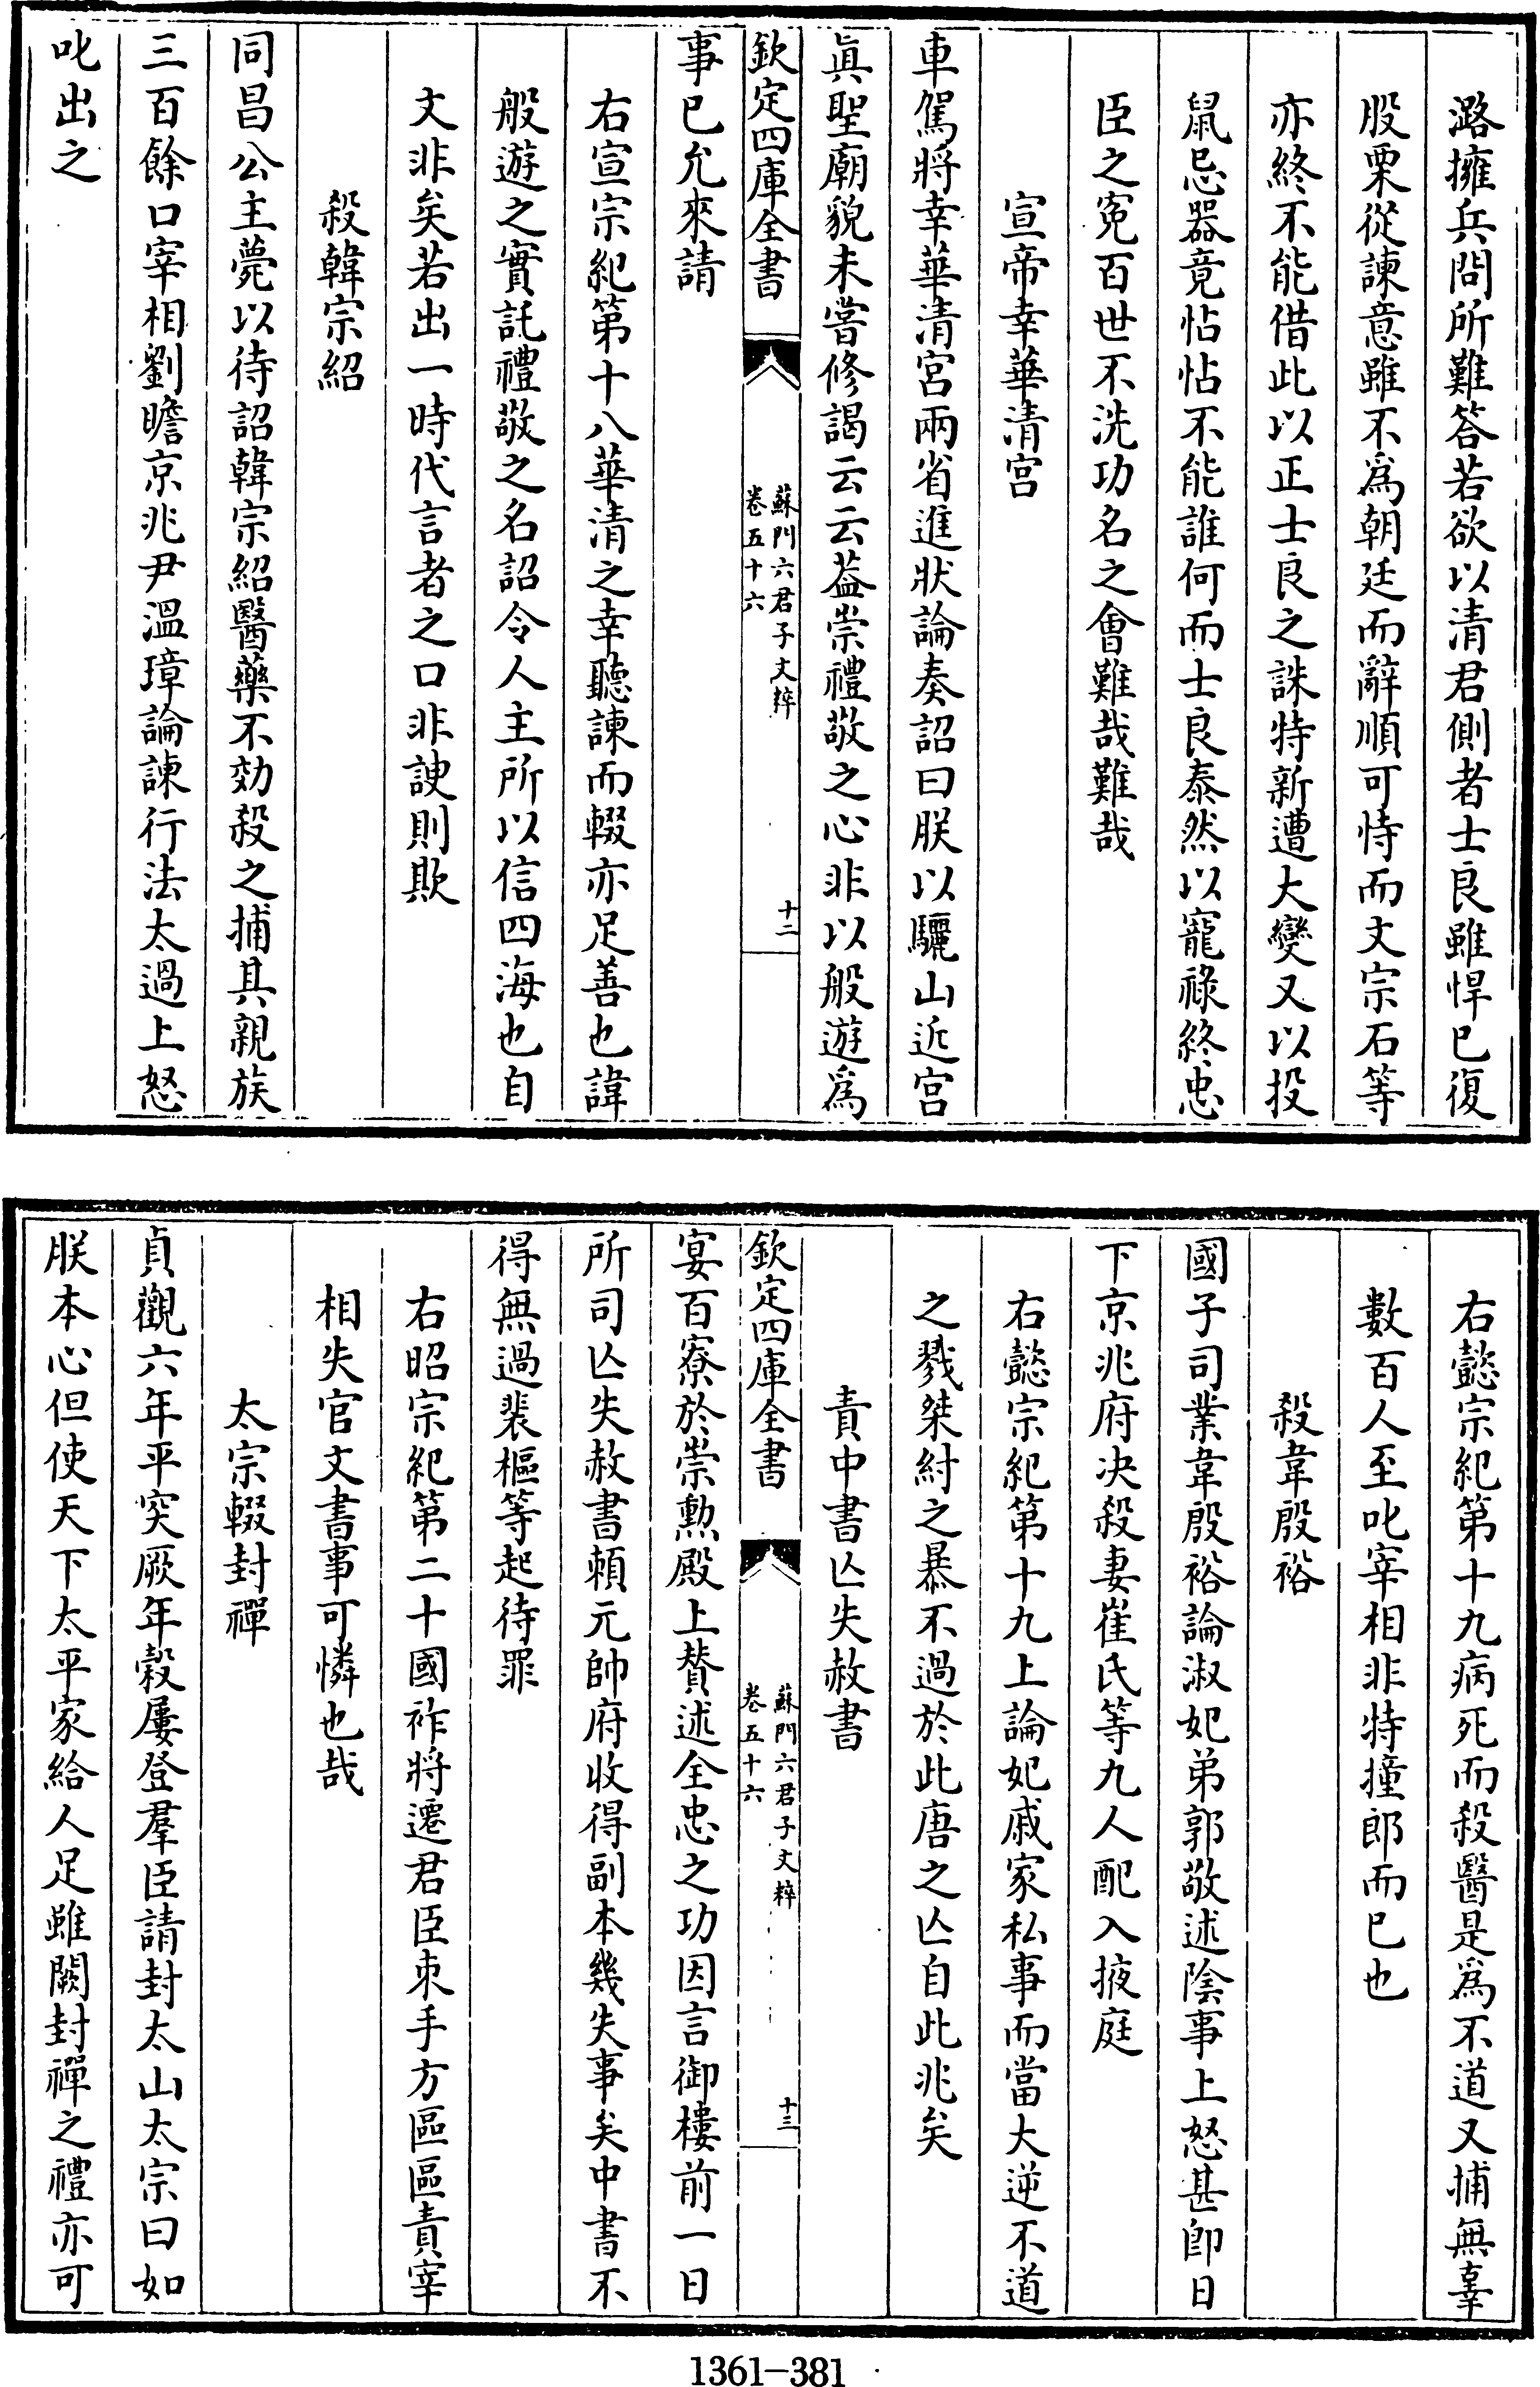 潞擁兵問所難答若欲以清君側者士良雖悍已復
股栗從諫意雖不為朝廷而辭順可恃而文宗石等
亦終不能借此以正士良之誅特新遭大變又以投
鼠忌器竟怗怗不能誰何而士良泰然以寵祿終忠
臣之寃百世不洗功名之會難哉難哉
宣帝幸華清宮
車駕將幸華清宮兩省進狀論奏詔曰朕以驪山近宮
眞聖廟貌未嘗修謁云云葢崇禮敬之心非以般遊為
欽定四庫全書
蘇門六君子文粹
卷五十六
十二
事已允來請
右宣宗紀第十八華清之幸聽諫而輟亦足善也諱
般遊之實託禮敬之名詔令人主所以信四海也自
文非矣若出一時代言者之口非諛則欺
殺韓宗紹
同昌公主薨以待詔韓宗紹醫藥不効殺之捕其親族
三百餘口宰相劉瞻京兆尹溫璋論諫行法太過上怒
叱出之
右懿宗紀第十九病死而殺醫是為不道又捕無辜
數百人至叱宰相非特撞郎而已也
殺韋殷裕
國子司業韋殷裕論淑妃弟郭敬述陰事上怒甚即日
下京兆府决殺妻崔氏等九人配入掖庭
右懿宗紀第十九上論妃戚家私事而當大逆不道
之戮桀紂之暴不過於此唐之亾自此兆矣
責中書亾失赦書
欽定四庫全書
蘇門六君子文粹
卷五十六
十三
宴百寮於崇勲殿上賛述全忠之功因言御樓前一日
所司亾失赦書頼元帥府收得副本幾失事矣中書不
得無過裴樞等起待罪
右昭宗紀第二十國祚將遷君臣束手方區區責宰
相失官文書事可憐也哉
太宗輟封禪
貞觀六年平突厥年穀屢登羣臣請封太山太宗曰如
朕本心但使天下太平家給人足雖闕封禪之禮亦可
1361-381